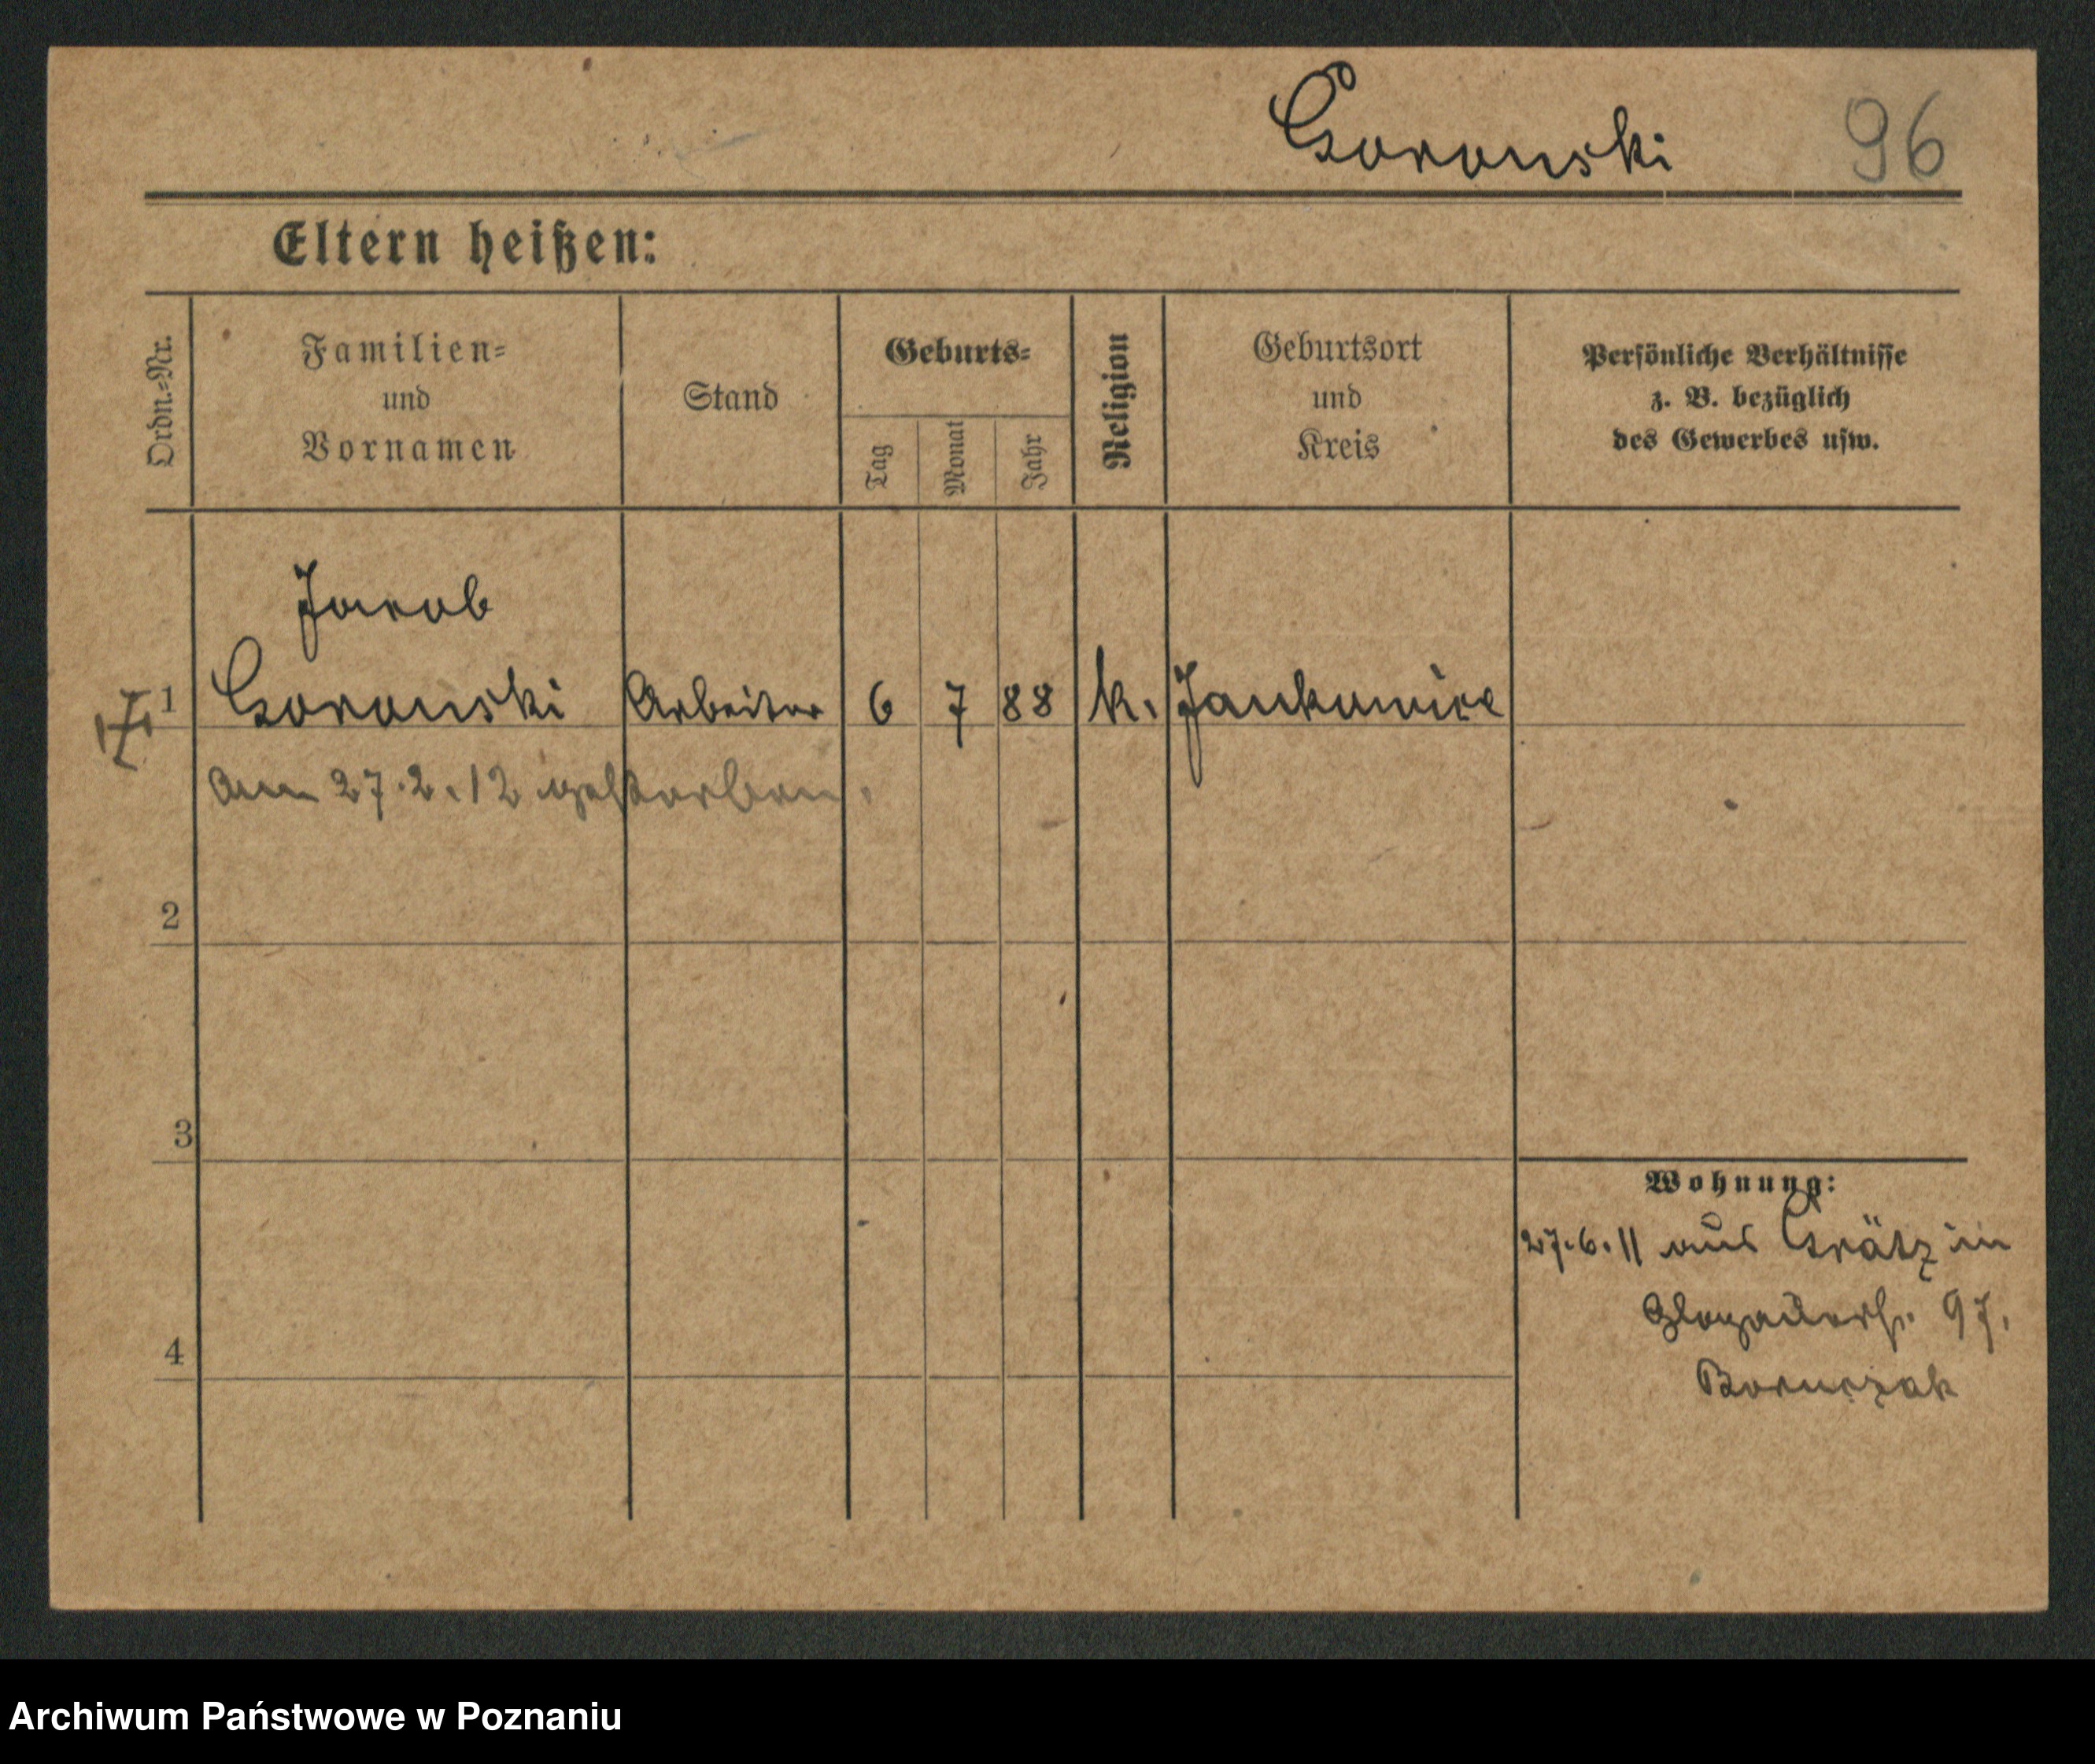 Goronski 96
Eltern heißen:
Ordn.-Nr.
Familien-
und
Vornamen
Stand
Geburts-
Tag
Monat
Jahr
Religion
Geburtsort
und
Kreis
Persönliche Verhältnisse
z. B. bezüglich
des Gewerbes usw.
Jacob
1 Goronski Arbeiter 6 7 88 k. Jankowice
am 27.2.12 gestorben.
2
3
4
Wohnung:
27.6.11 aus Grätz in
Glogauerstr. 97.
Boruczak
Archiwum Państwowe w Poznaniu